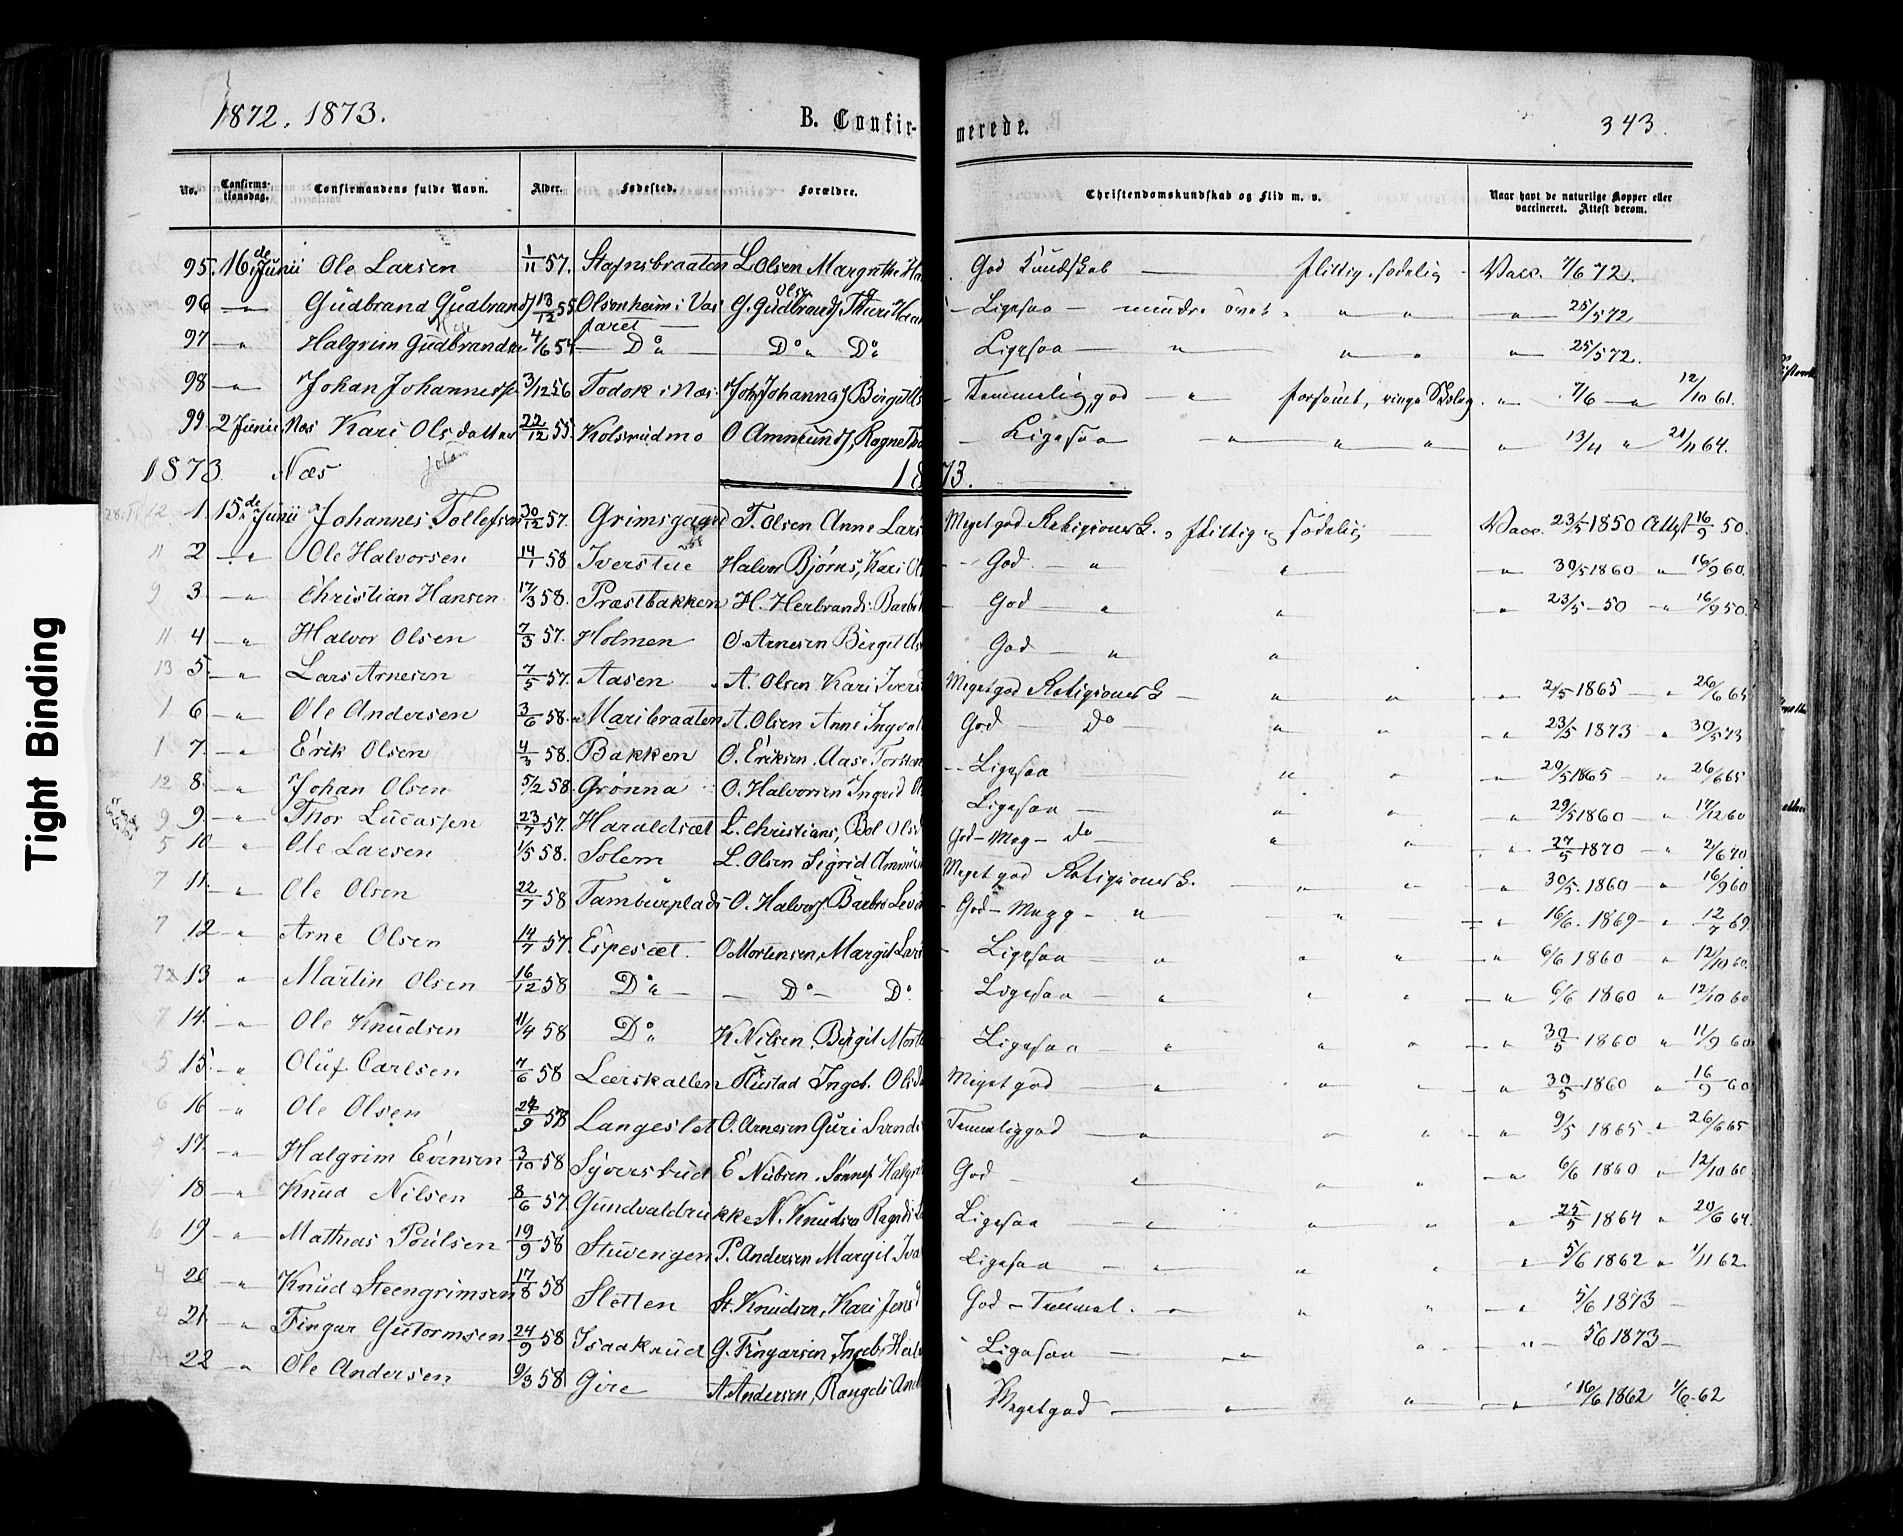 Tight Binding
1872. 1873. B. Confirmerede. 343
No. Confirmationsdag. Confirmandens fulde Navn. Alder. Fødested. Forældre. Christendomskundskab og Flid m. v. Naar havt de naturlige Kopper eller vaccineret. Attest derom.
95. 16de Junii Ole Larsen 1/11 57. Stafnsbraaten L Olsen Margrethe God Kundskab — flittig, sødelig - Vacc. 7/6 72.
96 — " — Gudbrand Gudbrands 13/12 55 Olsenheim i Vas faret G. Gudbrands, Thuri - Ligesaa - mindre øvet " " — " — 25/5 72
97 — " Halgrim Gudbrands 4/6 54 — Do " — Do " Do " Ligesaa — " " " " 25/5 72.
98 — " Johan Johannes 3/12 56 Todok i Næs Joh. Johannes Birgit Temmelig god — " — forsømt, ringe Skoleg. " 7/6 — " 12/10 61.
99 2 Junii. Næs Kari Olsdatter 22/12 55 Kolsrudmo O Ammunds, Ragne - Ligesaa — " — " " — " — 13/11 " 21/11 64.
1873 Næs 1873.
1 15de Junii Johannes Tollefsen 30/12 57. Grimsgaard T. Olsen Anne Lars Meget god Religionsk. " flittig og sødelig — Vacc. 23/5 1850 Attest 16/9 50.
2 — " Ole Halvorsen 14/1 58 Iverstue Halvor Bjørns, Kari Ol - God — " " — " — 30/5 1860 — " 16/9 60.
3. — " — Christian Hansen 17/3 58. Præstbakken H. Herbrands. Barb - God — " " — " 23/5 - 50 " 16/9 50.
4 — " Halvor Olsen 7/3 57. Holmen O Arnesen Birgit God — " "
5. — " Lars Arnesen 7/5 57. Aasen A. Olsen Kari Ivers Meget god Religionsk — " " " 2/5 1865 — " 26/6 65
6 — " Ole Andersen 3/6 58. Maribraaten A. Olsen Anne Ingval God — Do — " " — " 23/5 1873 " 30/5 73
7. — " Erik Olsen 4/3 58. Bakken O. Eriksen. Aase Torsten - Ligesaa " " — " — 20/5 1865 — " 26/6 65
8. — " Johan Olsen 5/2 58. Grønna O. Halvorsen Ingrid Ligesaa — " " — " — 29/5 1860 — " 17/12 60
9. — " Thor Lucassen 23/7 57. Haraldsæt L. Christians, Bol Ols God - Meg - Do " " — " 27/5 1870 — " 2/6 70
10 — " Ole Larsen 1/5 58. Solem L. Olsen Sigrid Ammun Meget god Religionsk. — " " — " — 30/5. 1860 — " 16/9 60
11. — " Ole Olsen 22/7 58 Tamburplads O. Halvors Barbro Leva God - Megg - " — " — " 16/6. 1869 — " 12/7 69.
12 — " Arne Olsen 14/7 57. Espesæt. O Mortensen, Margit Lars - Ligesaa — " " " — " — 6/6 1860 — " 12/10 60.
13 " Martin Olsen 16/12 58 Do " — — Do — Do. Ligesaa — " " " — " 6/6 1860 " 12/10 60
14. — " — Ole Knudsen 11/4 58 Do " K Nilsen, Birgit Morte Ligesaa — " " " — " 30/5 1860 " 11/9 60
15. — " Oluf Carlsen 7/6 58 Lærskallen Rustad Ingeb. Ols Meget god — " " " — " 30/5 1860 " 16/9 60
16 — " Ole Olsen 24/9 58 Langeslet O. Arnesen Guri Svends Temmelig god — " " " — " 9/5 1865 " 26/6 65
17. — " Halgrim Evensen 3/10 58 Syversbud E Nubsen. Sønnef Halgr God — " " " — " 6/6 1860 " 12/10 60
18 — " Knud Nilsen 8/6 57. Gundvaldrukke N. Knudsen Ragndi Ligesaa — " " " " 25/5 1864 " 20/6 64.
19 — " Mathias Poulsen 19/9 58 Stuvengen P. Andersen Margit Iva Ligesaa — " " " " 5/6 1862 " 1/11 62
20 — " Knud Steengrimsen 17/8 58 Sletten St. Knudsen, Kari Jens God - Temmel. — " " " — " 5/6 1873 —
21. — " Fingar Gutormsen 24/9 58 Isaakrud G. Fingarsen, Ingeb. Ligesaa — " " — " — 5/6 1873 —
22 — " Ole Andersen 9/3 58 Gire A Andersen, Rangdi And Meget god — " " — " — 16/6 1862 1/6 62